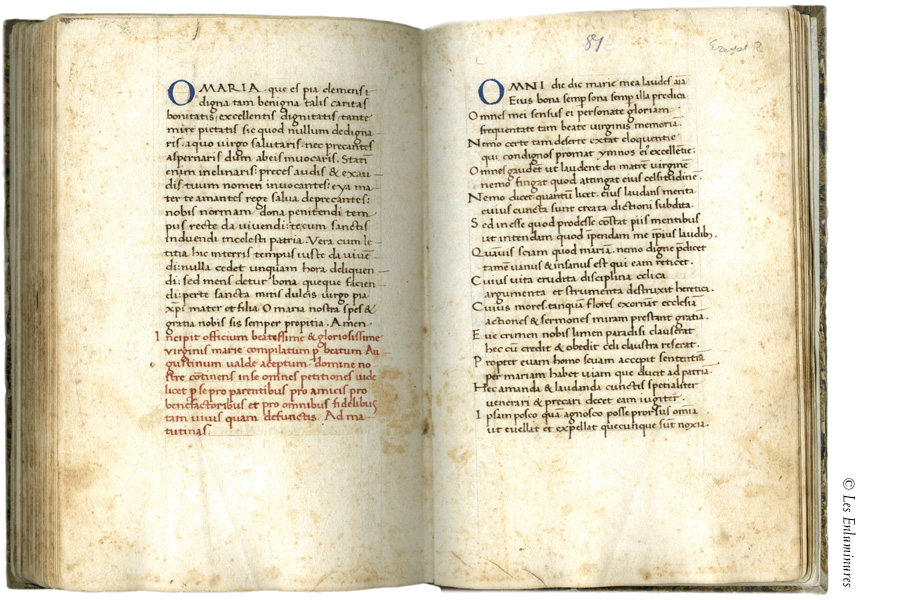 O MARIA que es pia clemens t
digna tam benigna talis caritas
bonitatis excellentis dignitatis tante
mire pietatis sic quod nullum dedigna
ris a quo virgo salutaris nec precantes
aspernaris dum abeis invocaris. Statī
enim inclinaris: preces audis & exau
dis tuum nomen invocantes: eya ma
ter te amantes rege salva deprecantes:
nobis normam dona penitendi tem
pus recte da vivendi: tecum sanctis
induendi in celesti patria. Vera cum le
titia hic in terris tempus iuste da vivē
di: nulla cedet unquam hora deliquen
di: sed mens detur bona queque facien
di: per te sancta mitis dulcis virgo pia
xp̄i mater et filia. O maria nostra spes &
gratia nobis sis semper propitia. Amen.
Incipit officium beatissime & gloriosissime
virginis marie compilatum p beatum Au
gustinum valde aceptum domino no
stro cōtinens in se omnes petitiones vide
licet p se pro parentibus pro amicis pro
benefactoribus et pro omnibus fidelibus
tam vivis quam defunctis. Ad ma
tutinas.
81
OMNI die dic marie mea laudes aīa
Eius bona semp sona semp illa predica
Omnes mei sensus ei personate gloriam
frequentate tam beate virginis memoriā.
Nemo certe tam deserte extat eloquentie
qui condignos promat ymnos ei' excellētie:
Omnes gaudēt ut laudent dei matrē virginē
nemo fingat quod attingat eius celsitudinē.
Nemo dicet quantū licet eius laudans merita
cuius cuncta sunt creata dictioni subdita.
Sed inesse quod prodesse cōstat piis mentibus
ut intendam quod īpendam me ipsius laudib;.
Quāvis sciam quod mariā nemo digne p̄dicet
tamē vanus & insanus est qui eam reticet.
Cuius vita erudita disciplina celica
argumenta et strumenta destruxit heretica.
Cuius mores tanquā flores exornāt ecclesiā
actiones & sermones miram prestant gratia.
Eve crimen nobis limen paradisi clauserat
hec cū credit & obedit celi claustra reserat.
Propter evam homo sevam accepit sententiā
per mariam habet viam que ducit ad patria.
Hec amanda & laudanda cunctis spetialiter
venerari & precari decet eam iugiter.
Ipsam posco quā agnosco posse prorsus omīa
ut evellat et expellat quecunque sūt noxia.
© Les Enluminures